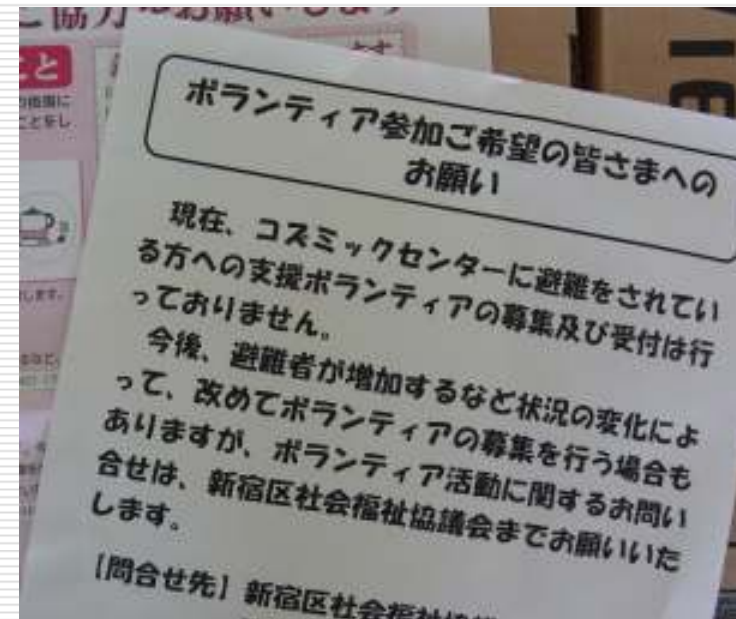 ご協力のお願いします
こと
ボランティア参加ご希望の皆さまへの
お願い
現在、コズミックセンターに避難をされてい
る方への支援ボランティアの募集及び受付は行
っておりません。
今後、避難者が増加するなど状況の変化によ
って、改めてボランティアの募集を行う場合も
ありますが、ボランティア活動に関するお問い
合せは、新宿区社会福祉協議会までお願いいた
します。
【問合せ先】新宿区社会福祉協議